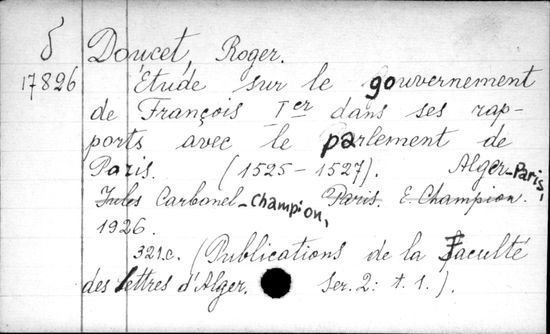 δ Doucet, Roger.
17826 Étude sur le gouvernement
de François Ier dans ses rap-
ports avec le parlement de
Paris. (1525-1527). Alger-Paris,
Jules Carbonel-Champion, Paris. E. Champion.
1926.
321.c. (Publications de la Faculté
des lettres d'Alger. Ser. 2: t. 1.).